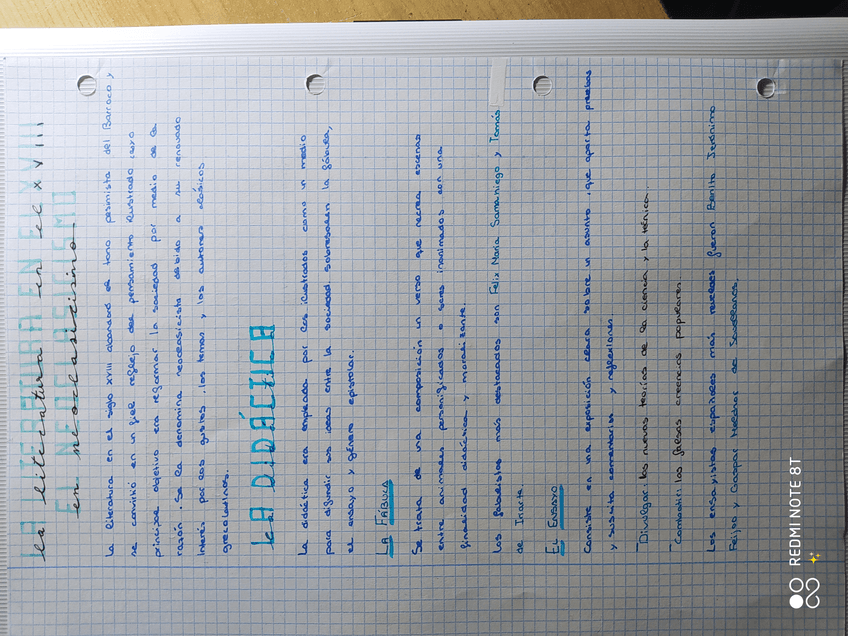 LA LITERATURA EN EL XVIII
la literatura en el XVIII
EL NEOCLASICISMO
en neoclasicismo.
La literatura en el siglo XVIII abandonó el tono pesimista del Barroco y
se convirtió en un fiel reflejo del pensamiento ilustrado cuyo
principal objetivo era reformar la sociedad por medio de la
razón. Se la denomina neoclasicista debido a su renovado
interés por los gustos, los temas y los autores clásicos
grecolatinos.
LA DIDÁCTICA
La didáctica era empleada por los ilustrados como un medio
para difundir sus ideas entre la sociedad. sobresalen la fábula,
el ensayo y género epistolar.
LA FÁBULA
Se trata de una composición in verso que recrea escenas
entre animales personificados o seres inanimados con una
finalidad didáctica y moralizante.
Los fabulistas más destacados son Felix María Samaniego y Tomás
de Iriarte.
EL ENSAYO
Consiste en una exposición clara sobre un asunto, que aporta pruebas
y suscita comentarios y reflexiones.
- Divulgar las nuevas teorías de la ciencia y la técnica.
- Combatir las falsas creencias populares.
Los ensayistas españoles más famosos fueron Benito Jerónimo
Feijoo y Gaspar Melchor de Jovellanos.
REDMI NOTE 8T